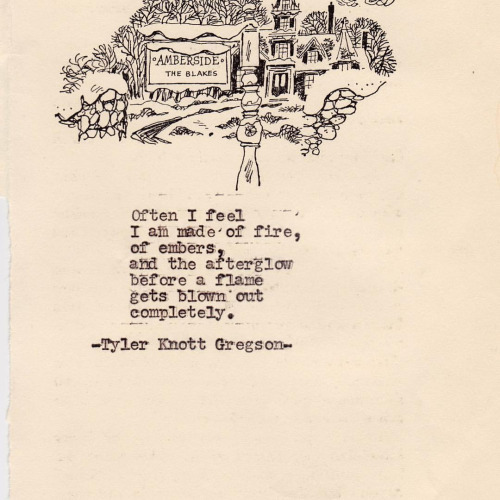 AMBERSIDE
THE BLAKES
Often I feel
I am made of fire,
of embers,
and the afterglow
before a flame
gets blown out
completely.
-Tyler Knott Gregson-